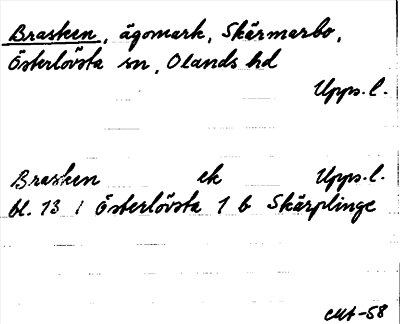 Brasken, ägomark, Skärmarbo,
Österlövsta sn, Olands hd
Upps. l.
Brasken ek Upps. l.
bl. 13 / Österlövsta 1 b Skärplinge
CMA-58